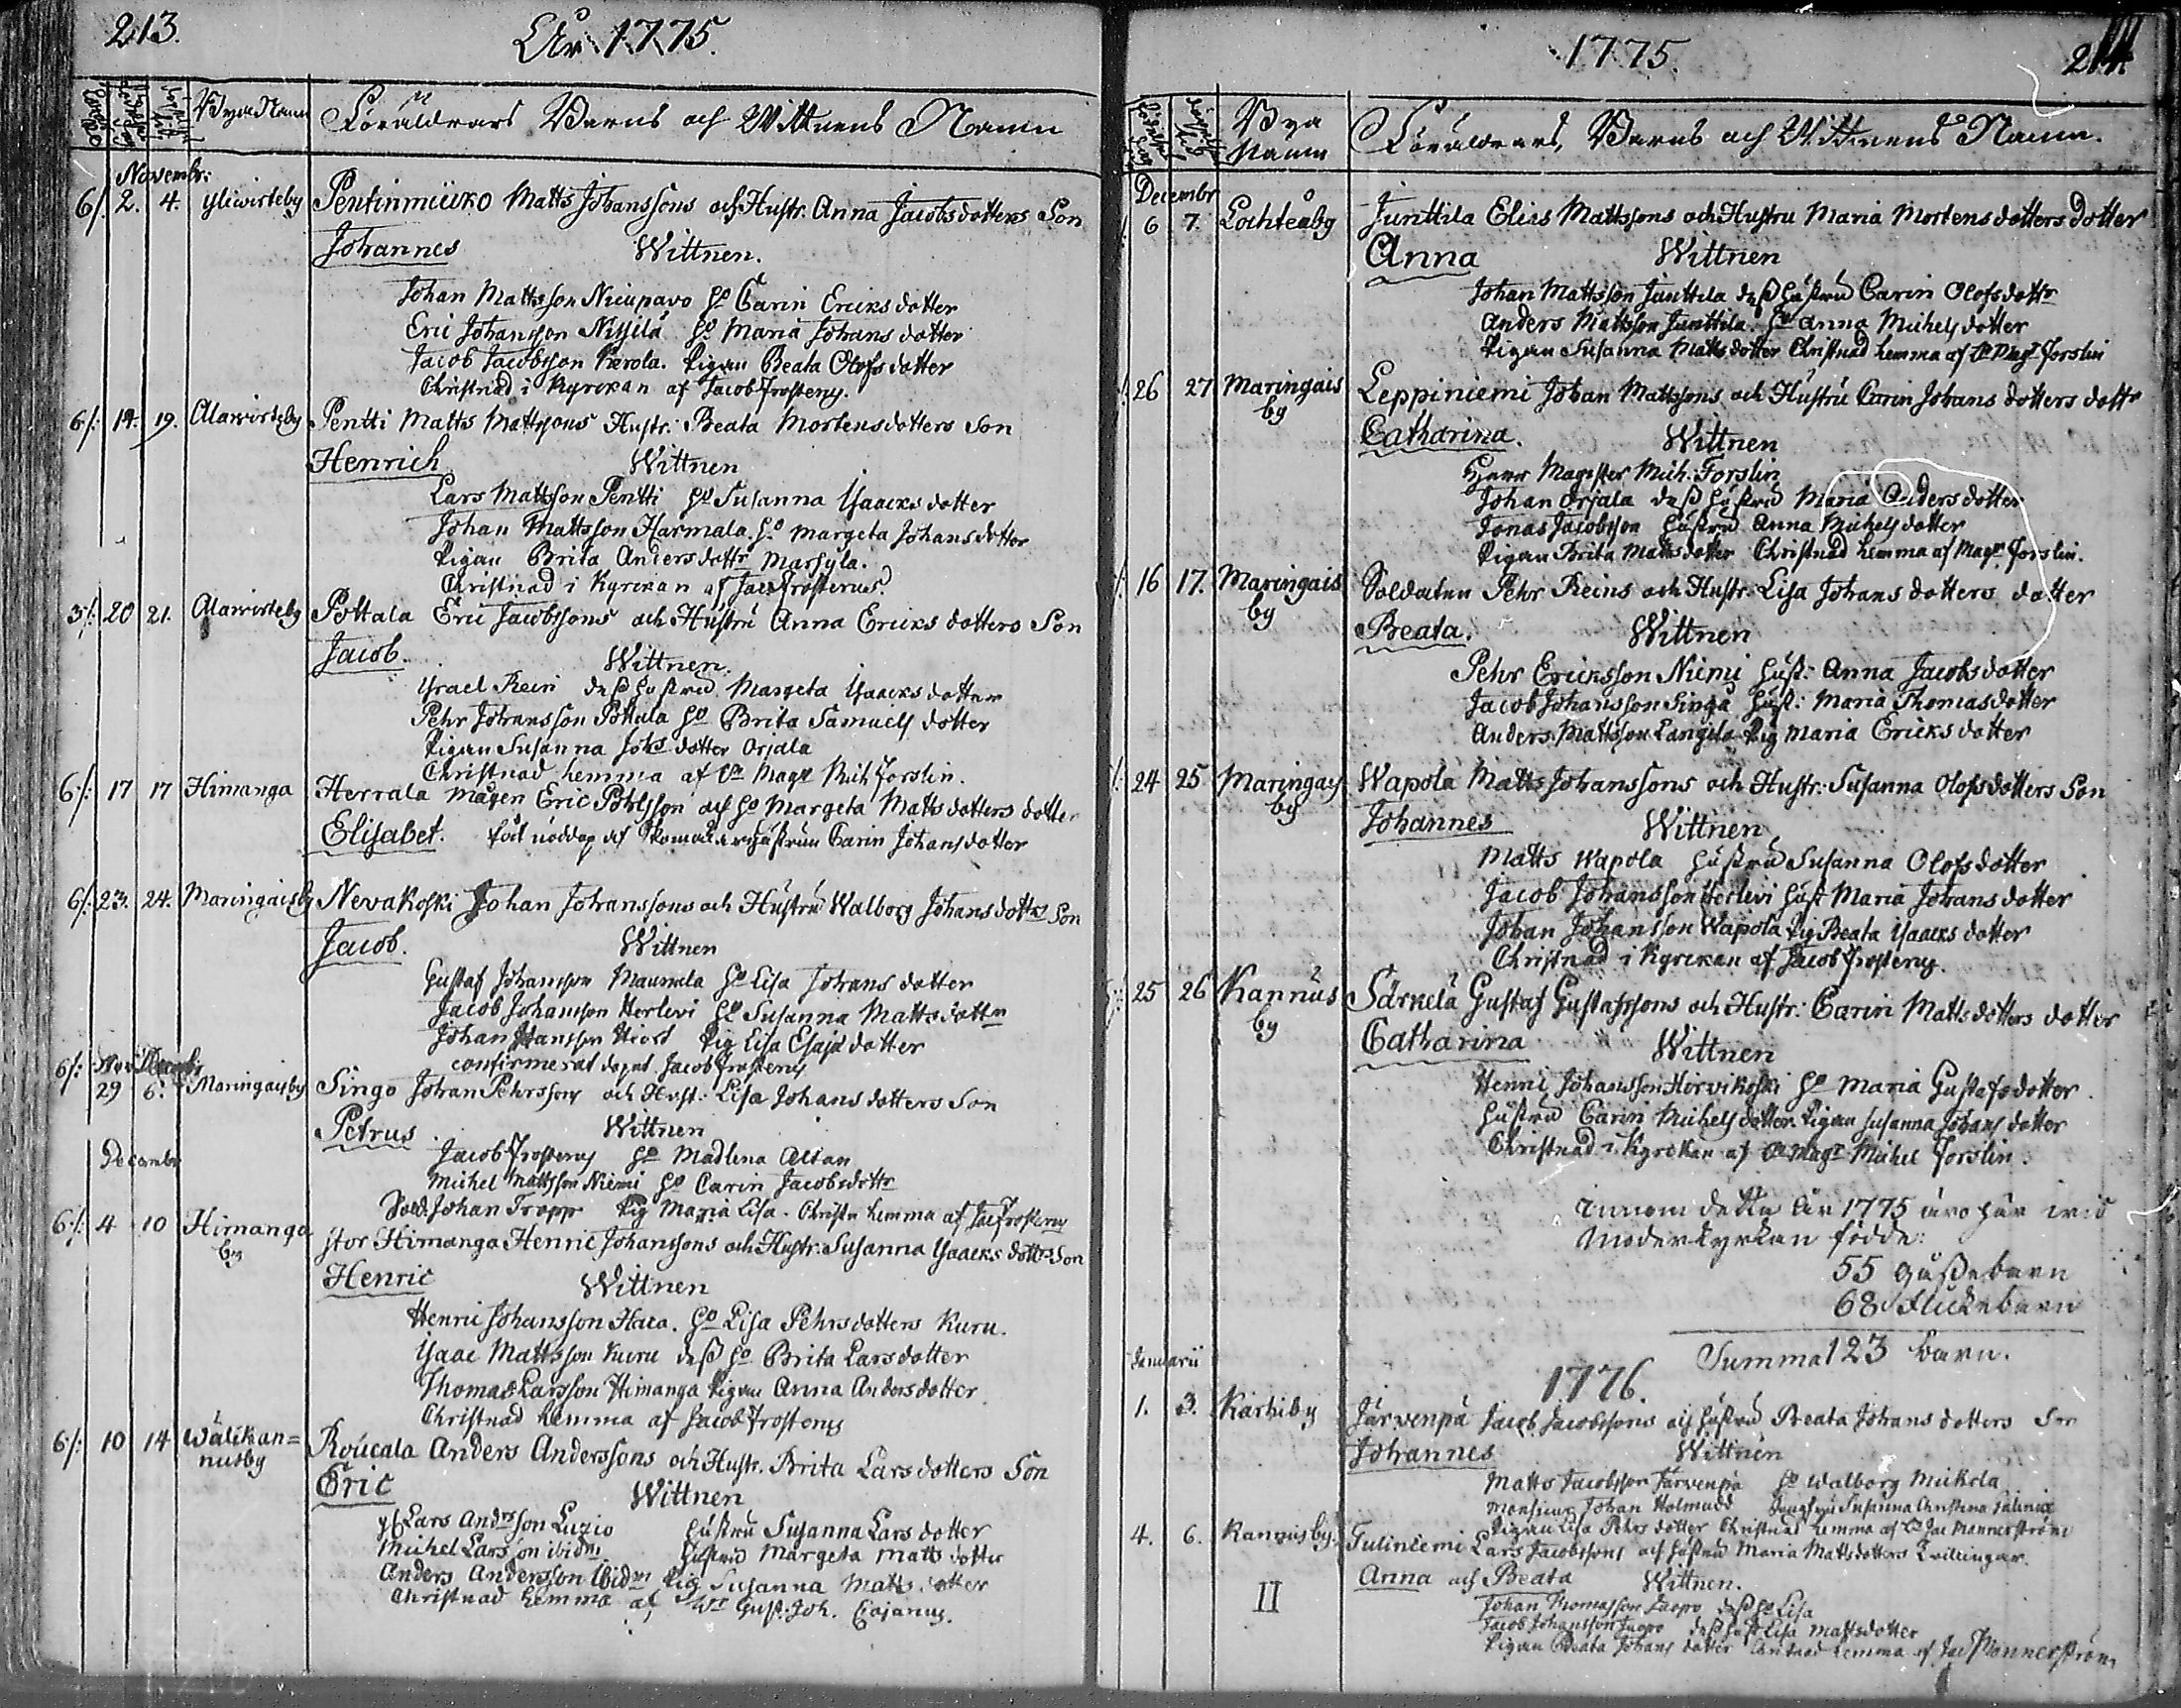 213.
År 1775.
Byens Namn
Föräldrars Barns och Wittnens Namn
Novembr:
6/. 2. 4. Yliwirteby Pentinmücko Matts Johanssons och Hustr. Anna Jacobsdotters Son
Johannes Wittnen.
Johan Mattsson Nicupavo Ho Carin Ericks dotter
Eric Johansson Nissilä Ho Maria Johans dotter
Jacob Jacobsson Kerola. Pigan Beata Olofs dotter
Christnad i Kyrckan af Jacob Frosterus.
6/: 14. 19. Alawirteby Pentti Matts Mattssons Hustr. Beata Mortensdotters Son
Henrich Wittnen
Lars Mattsson Pentti Ho Susanna Ysaacks dotter
Johan Mattsson Harmala. Ho Margeta Johansdotter
Pigan Brita Anders dottr Marsyla.
Christnad i Kyrckan af Jac Frosterus.
3/: 20 21. Alawirteby Pottala Eric Jacobssons och Hustru Anna Ericks dotters Son
Jacob. Wittnen.
Ysrael Rein dess hustru Margeta Ysaacks dotter
Pehr Johansson Pottala Ho Brita Samuels dotter
Pigan Susanna Johs dotter Orjala
Christnad hemma af Hr Magr Mich Forslin.
6/: 17 17 Himanga Herrala Mågen Eric Pohlsson och Ho Margeta Matts dotters dotter
Elisabet. fått nöddop af hustrun Carin Johansdotter
6/: 23. 24. Maringaisby Nevakoski Johan Johanssons och Hustru Walborg Johans dottrs Son
Jacob. Wittnen
Gustaf Johansson Maunula Ho Lisa Johans dotter
Jacob Johansson Herlevi Ho Susanna Matts dottr
Johan Hansson Hiort Pig Lisa Esajæ dotter
confirmerat dopet Jacob Frosterus
6/: 29 6. Maringaisby Singo Johan Pehrssons och Hust: Lisa Johans dotters Son
Petrus Wittnen
Jacob Frosterus Ho Madlena Alian
Decembr
Michel Mattsson Niemi Ho Carin Jacobsdottr
Sold. Johan Tropp Pig Maria Lisa. Christn hemma af Jac Frosterus
6/: 4 10 Himanga by Stor Himanga Henric Johanssons och Hustr. Susanna Ysaacks dottrs Son
Henric Wittnen
Henric Johansson Haca. Ho Lisa Pehrsdotters Kuru.
Ysaac Mattsson Kuru dess Ho Brita Larsdotter
Thomas Larsson Himanga Pigan Anna Andersdotter
Christnad hemma af Jacob Frosterus
6/: 10 14 Wälikan=
nusby Roucala Anders Anderssons och Hustr. Brita Larsdotters Son
Eric Wittnen
Lars Andrsson Luzio Hustru Susanna Lars dotter
Michel Larsson ibidm Hustru Margeta Matts dotter
Anders Andersson Ibidm Pig Susanna Matts dotter
Christnad hemma af Hr Gust: Joh. Cajanus.
1775.
214.
Bya
Namn
Föräldrars, Barns och Wittnens Namn.
Decembr
6 7. Lochteåby Junttila Elias Mattssons och Hustru Maria Mortens dotters dotter
Anna Wittnen
Johan Mattsson Junttila dess hustru Carin Olofsdottr
Anders Mattsson Junttila. Ho Anna Michels dotter
Pigan Susanna Matts dotter Christnad hemma af Hr Magr Forslin
26 27 Maringais
by Leppiniemi Johan Mattssons och Hustru Carin Johans dotters dottr
Catharina. Wittnen
Herr Magister Mich. Forslin
Johan Orjala dess hustru Maria Anders dotter
Jonas Jacobsson hustru Anna Michels dotter
Pigan Brita Matts dotter Christnad hemma af Magr Forslin.
16 17. Maringais
by Soldaten Pehr Reins och Hustr. Lisa Johans dotters dotter
Beata. Wittnen
Pehr Ericksson Niemi hust: Anna Jacobsdotter
Jacob Johansson Singå hust: Maria Thomasdotter
Anders Mattsson Langila Pig Maria Ericks dotter
24 25 Maringais
by Wapola Matts Johanssons och Hustr: Susanna Olofsdotters Son
Johannes Wittnen
Matts Wapola hustru Susanna Olofsdotter
Jacob Johansson Herlevi hust Maria Johans dotter
Johan Johansson Wapola Pig Beata Ysaacks dotter
Christnad i Kyrckan af Jacob Frosterus.
25 26 Kannus
by Särkelä Gustaf Gustafssons och Hustr: Carin Matts dotters dotter
Catharina Wittnen
Henric Johansson Hirvikoski Ho Maria Gustafsdotter
Hustru Carin Michels dotter Pigan Susanna Johans dotter
Christnad i Kyrckan af Hr Magr Michel Forslin.
Innom detta år 1775 äro här wid
Moderkyrkan födde:
55 Gåssebarn
68 Flickebarn
Summa 123 barn.
Januarii
1776.
1. 3. Karhiby Järvenpä Jacob Jacobssons och hustru Beata Johans dotters Son
Johannes Wittnen
Matts Jacobsson Järvenpä Ho Walborg Mickola
Monsieur Johan Holmudd Jungfru Susanna Christina Salinia
Pigan Lisa Pehrs dotter Christnad hemma af Hr Jac Mannerström
4. 6. Kannusby. Tuliniemi Lars Jacobssons och hustru Maria Mattsdotters Tvillingar.
Anna och Beata Wittnen.
II
Johan Thomasson Luopo dess Ho Lisa
Jacob Johansson Juopo dess hust Lisa Mattsdotter
Pigan Beata Johans dotter Christnad hemma af Jac Mannerström